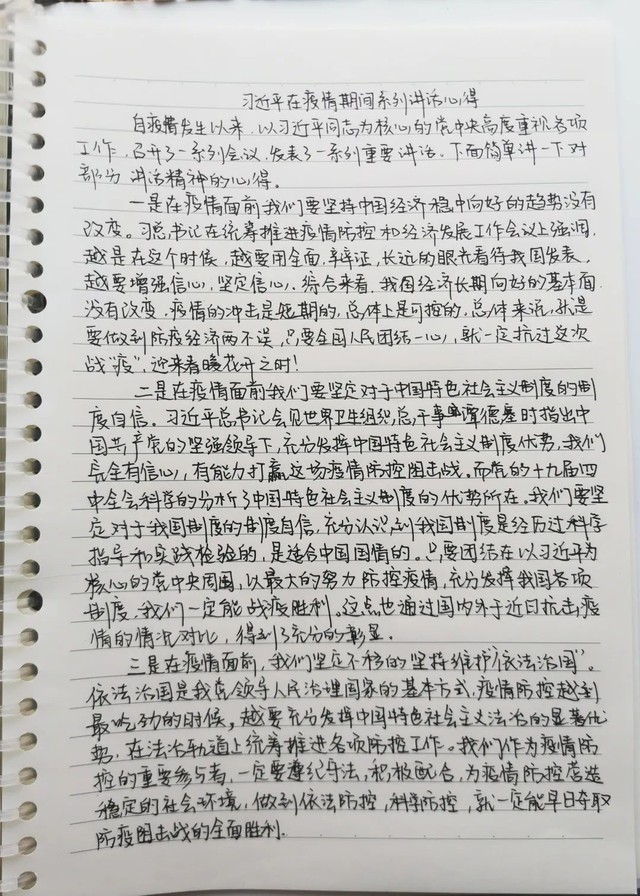 习近平在疫情期间系列讲话心得
自疫情发生以来，以习近平同志为核心的党中央高度重视各项
工作，召开了一系列会议，发表了一系列重要讲话。下面简单讲一下对
部分讲话精神的心得。
一是在疫情面前我们要坚持中国经济稳中向好的趋势没有
改变。习总书记在统筹推进疫情防控和经济发展工作会议上强调，
越是在这个时候，越要用全面，辩证，长远的眼光看待我国发表，
越要增强信心，坚定信心，综合来看，我国经济长期向好的基本面
没有改变，疫情的冲击是短期的，总体上是可控的，总体来说，就是
要做到防疫经济两不误，只要全国人民团结一心，就一定抗过这次
战“疫”，迎来春暖花开之时！
二是在疫情面前我们要坚定对于中国特色社会主义制度的制
度自信。习近平总书记会见世界卫生组织总干事谭德塞时指出中
国共产党的坚强领导下，充分发挥中国特色社会主义制度优势，我们
完全有信心，有能力打赢这场疫情防控阻击战。而有的十九届四
中全会科学的分析了中国特色社会主义制度的优势所在。我们要坚
定对于我国制度的制度自信，充分认识到我国制度是经历过科学
指导和实践检验的，是适合中国国情的。只要团结在以习近平为
核心的党中央周围，以最大的努力防控疫情，充分发挥我国各项
制度，我们一定能战疫胜利。这点也通过国内外于近日抗击疫
情的情况对比，得到了充分的彰显。
三是在疫情面前，我们坚定不移的坚持维护“依法治国”。
依法治国是我党领导人民治理国家的基本方式，疫情防控越到
最吃劲的时候，越要充分发挥中国特色社会主义法治的显著优
势，在法治轨道上统筹推进各项防控工作。我们作为疫情防
控的重要参与者，一定要遵纪守法，积极配合，为疫情防控营造
稳定的社会环境，做到依法防控，科学防控，就一定能早日夺取
防疫阻击战的全面胜利.